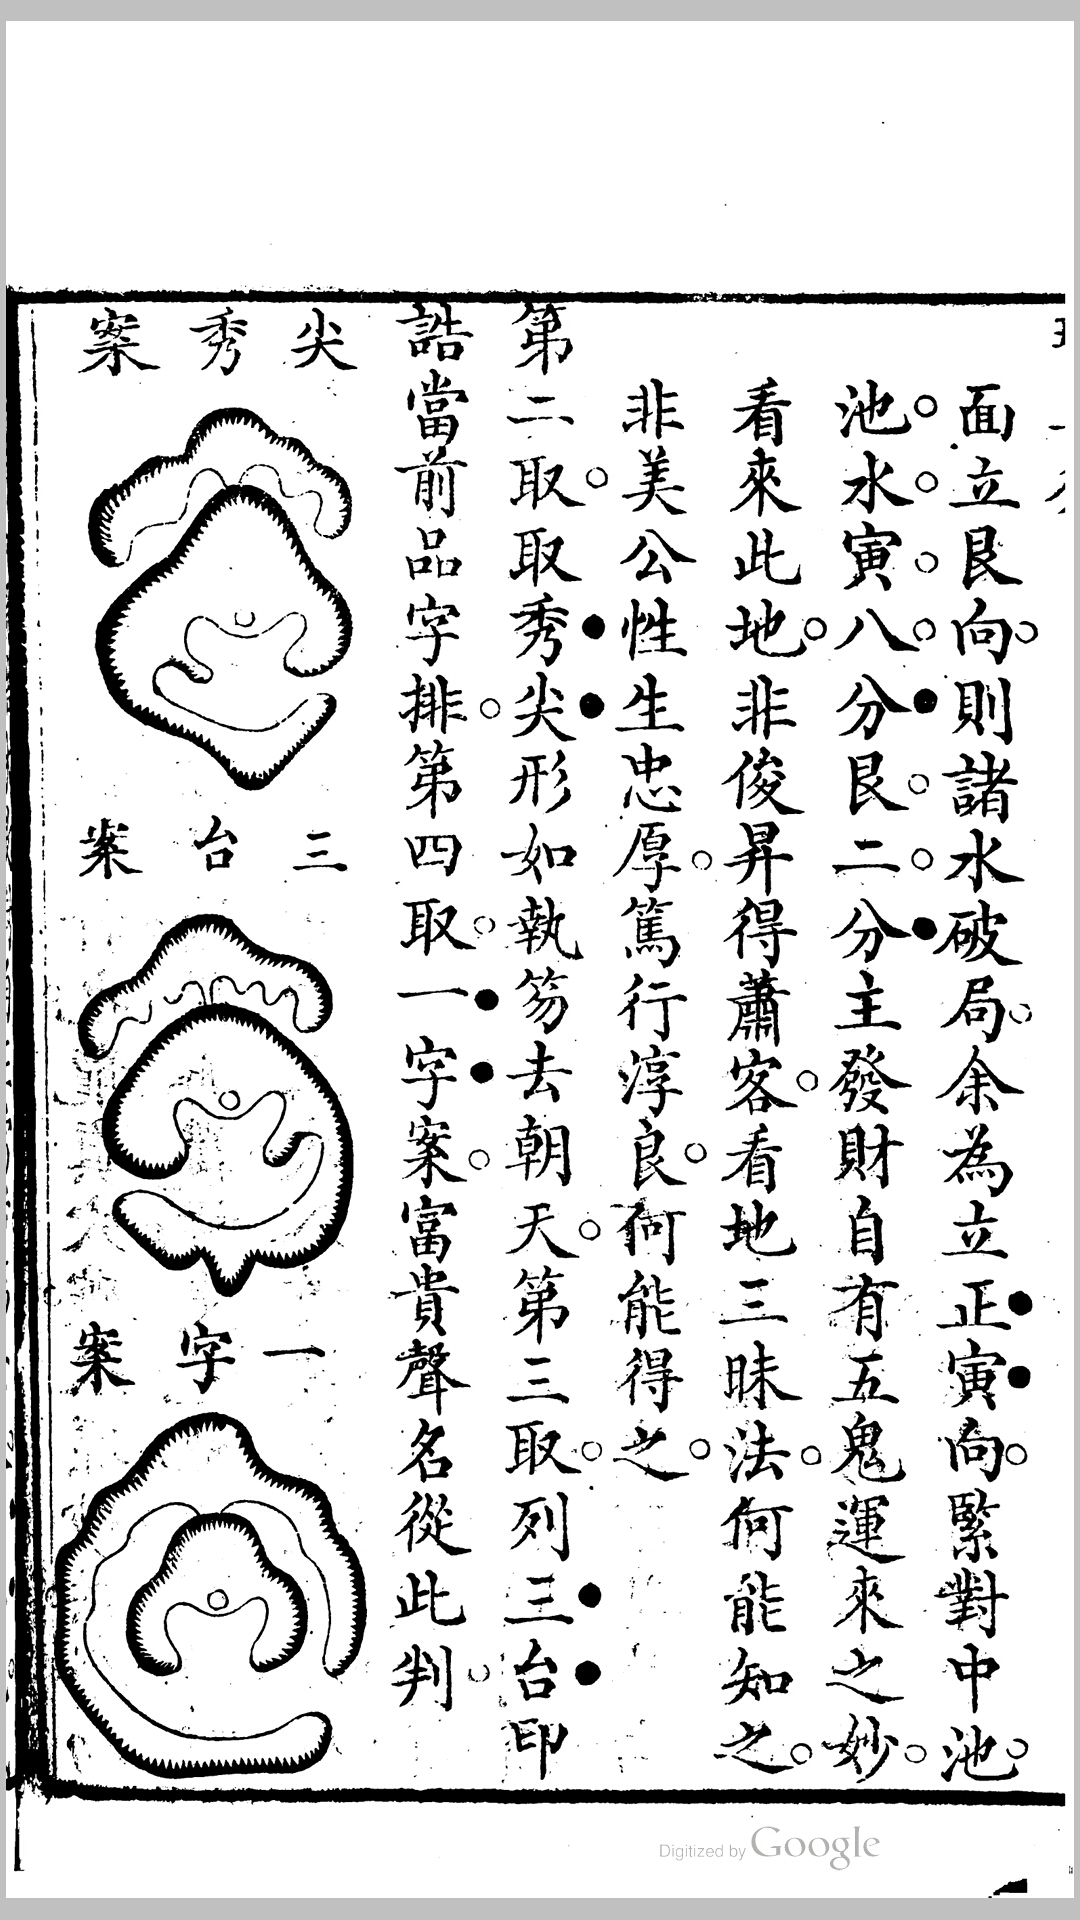 面立艮向則諸水破局余為立正寅向緊對中池
池水寅八分艮二分主發財自有五鬼運來之妙
看來此地非俊昇得蕭客看地三昧法何能知之
非美公性生忠厚篤行淳良何能得之
第二取取秀尖形如執笏去朝天第三取列三台印
誥當前品字排第四取一字案富貴聲名從此判
尖秀案
三台案
一字案
Digitized by Google